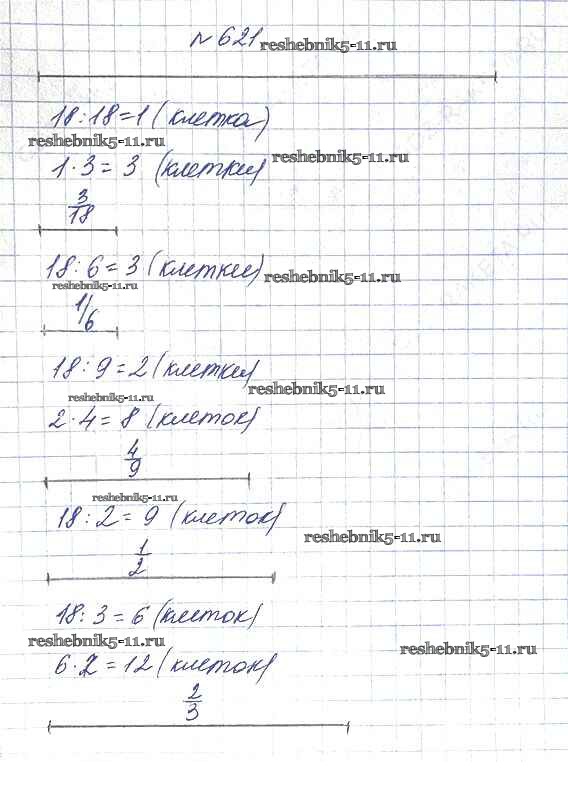 № 621 reshebnik5-11.ru
18 : 18 = 1 (клетка)
reshebnik5-11.ru
1 · 3 = 3 (клетки) reshebnik5-11.ru
3/18
18 : 6 = 3 (клетки) reshebnik5-11.ru
reshebnik5-11.ru
1/6
18 : 9 = 2 (клетки) reshebnik5-11.ru
reshebnik5-11.ru
2 · 4 = 8 (клеток)
4/9
reshebnik5-11.ru
18 : 2 = 9 (клеток) reshebnik5-11.ru
1/2
18 : 3 = 6 (клеток)
reshebnik5-11.ru reshebnik5-11.ru
6 · 2 = 12 (клеток)
2/3